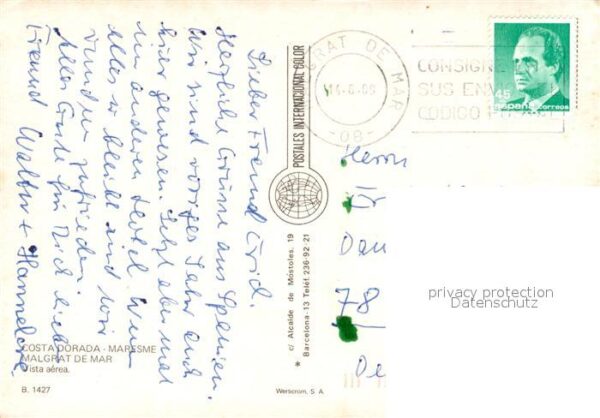 Lieber Freund Erich.
Herzliche Grüsse aus Spanien.
Wir sind voriges Jahr auch
hier gewesen. Jetzt aber mal
im anderen Hotel. Wenn
alles so bleibt sind wir
rundum zufrieden.
Alles Gute für Dich lieber
Freund Walter + Hannelore.
COSTA DORADA - MARESME
MALGRAT DE MAR
Vista aérea.
B. 1427
POSTALES INTERNACIONAL COLOR
c/ Alcalde de Móstoles, 19
Barcelona-13 Teléf. 236-92 21
Werscrom, S. A.
GRAT DE MAR
-08-
CONSIGNE
SUS ENV
CODIGO PO
45
españa correos
Herrn
78
privacy protection
Datenschutz